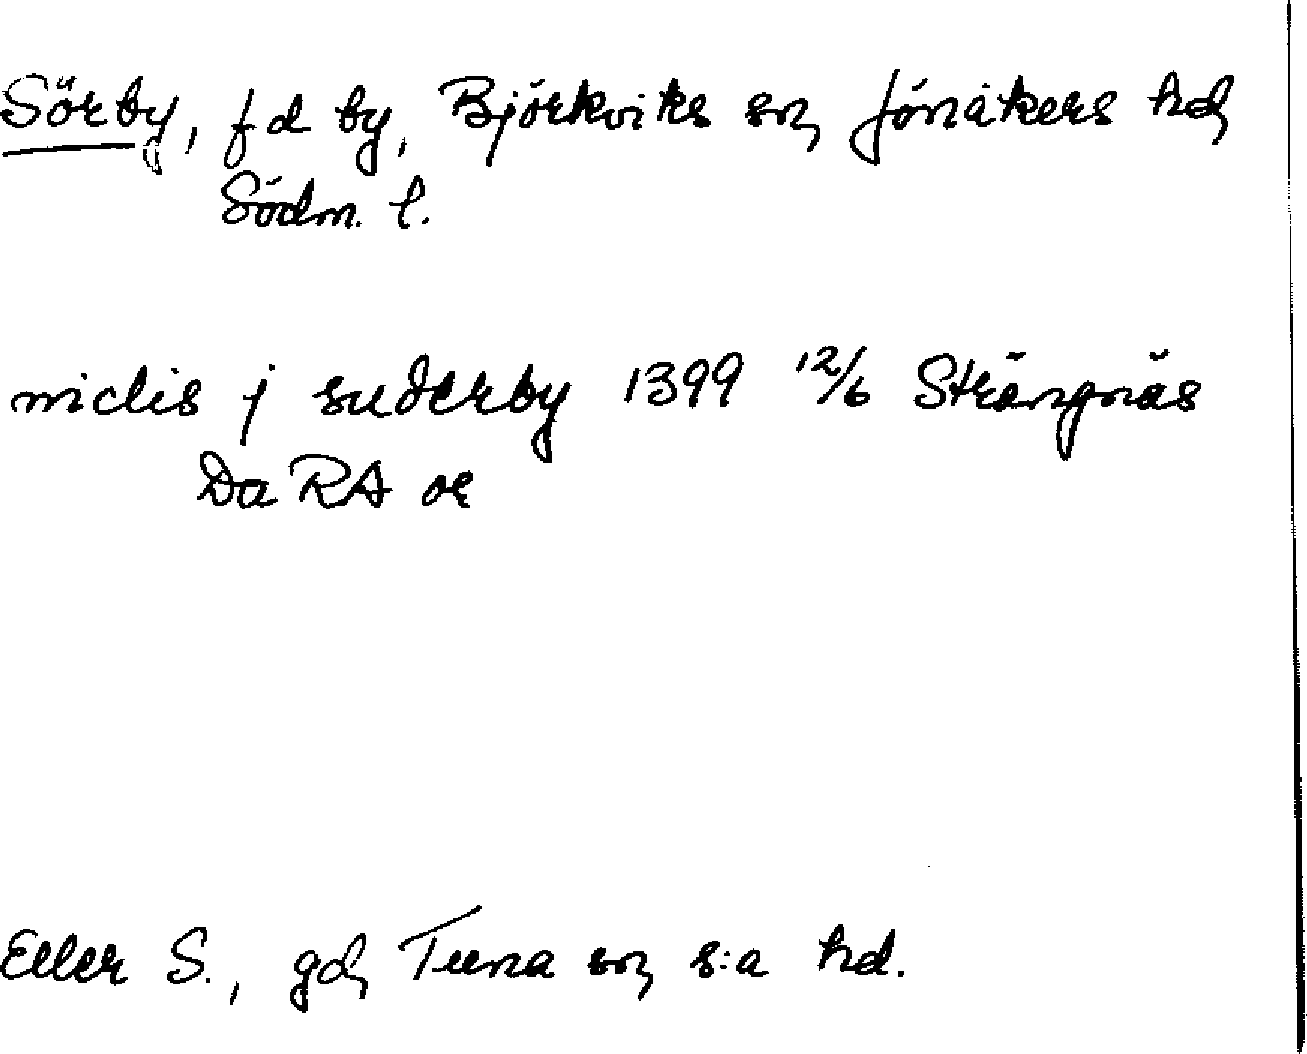 Sörby, fd by, Björkviks sn, Jönåkers hd,
Södm. l.
niclis j suderby 1399 12/6 Strängnäs
Da RA or
Eller S., gd, Tuna sn, s:a hd.